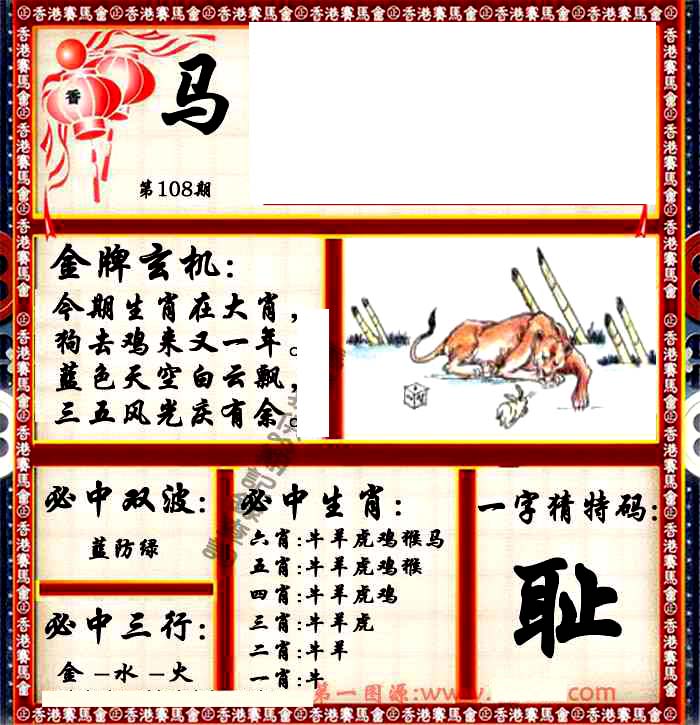 正香港賽馬會正香港賽馬會正香港賽馬會正香港賽馬會正香港賽馬會正香港賽馬會正
香
马
第108期
金牌玄机:
今期生肖在大肖,
狗去鸡来又一年。
蓝色天空白云飘,
三五风光庆有余。
必中双波:
蓝防绿
必中三行:
金－水－火
必中生肖:
六肖:牛羊虎鸡猴马
五肖:牛羊虎鸡猴
四肖:牛羊虎鸡
三肖:牛羊虎
二肖:牛羊
一肖:牛
一字猜特码:
耻
第一图源:www. com